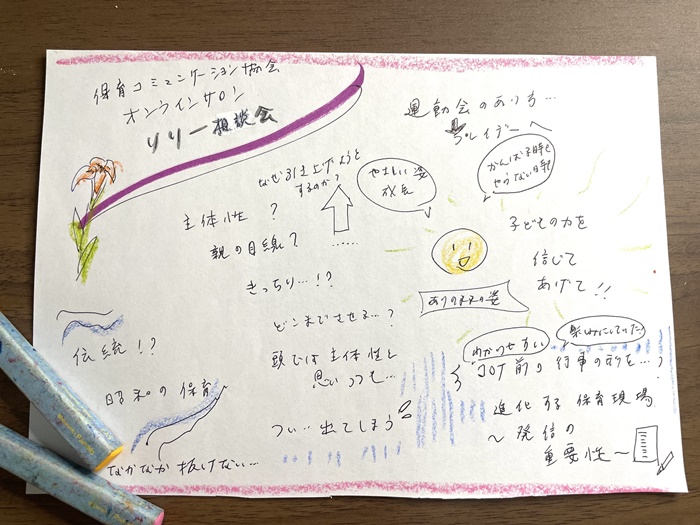 保育コミュニケーション協会
オンラインサロン
リリー相談会
なぜ引き上げようと
するのか？
主体性？
親の目線？
……
きっちり…!？
どこまでさせる…？
頭では主体性と
思いつつも…
つい…出てしまう
伝統!？
昭和の保育
なかなか抜けない…
運動会のありち…
プレイデーへ
がんばる時と
やらない時
やさしい姿
成長
子どもの力を
信じて
あげて!!
ありのママの姿
わかりやすい
楽しみにしていた
JOT前の行事の形を…？
進化する保育現場
～発信の
重要性～